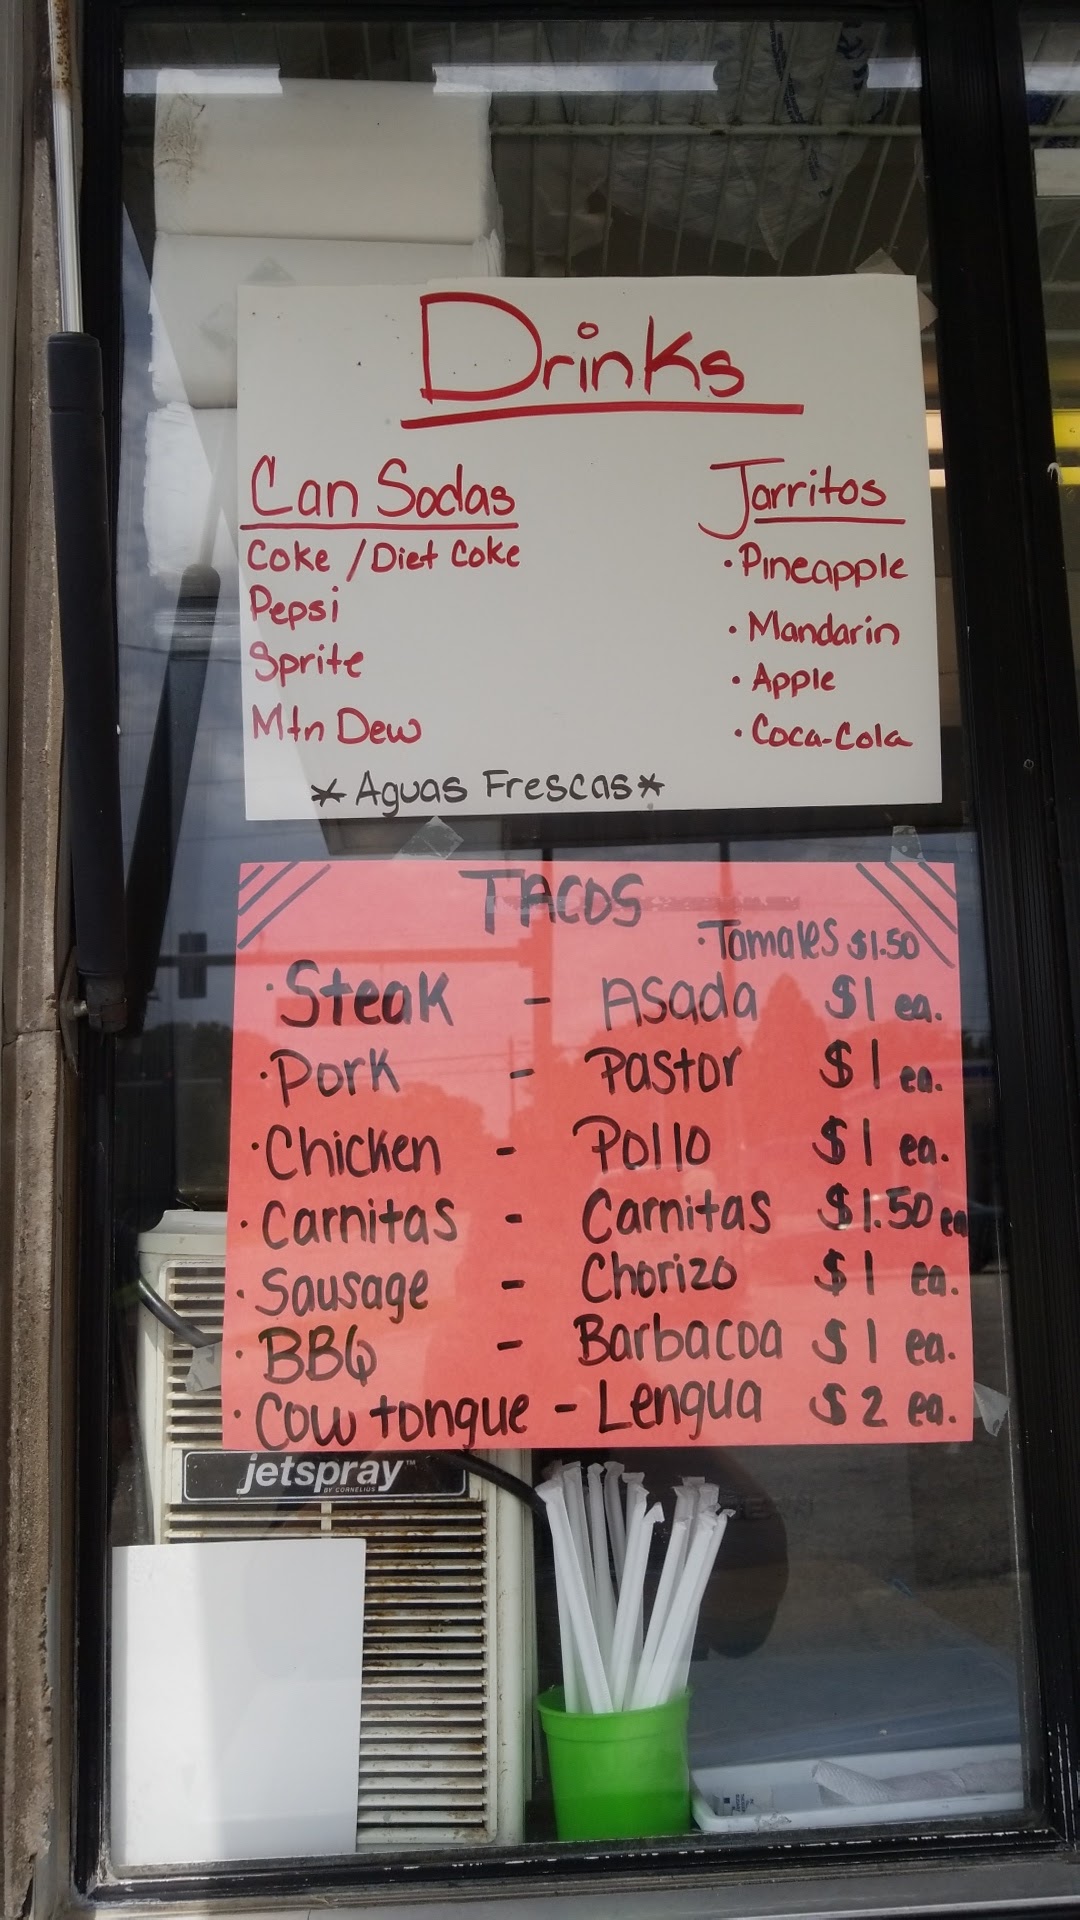 Drinks
Can Sodas
Coke / Diet Coke
Pepsi
Sprite
Mtn Dew
Jarritos
· Pineapple
· Mandarin
· Apple
· Coca-Cola
* Aguas Frescas *
TACOS
· Tamales $1.50
· Steak - Asada $1 ea.
· Pork - Pastor $1 ea.
· Chicken - Pollo $1 ea.
· Carnitas - Carnitas $1.50 ea
· Sausage - Chorizo $1 ea.
· BBQ - Barbacoa $1 ea.
· Cow tongue - Lengua $2 ea.
jetspray™
BY CORNELIUS